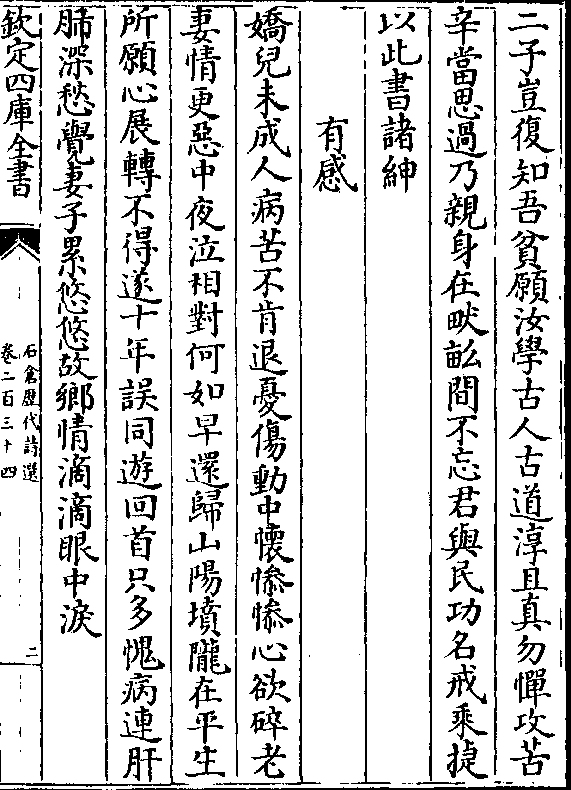 二子豈復知吾貧願汝學古人古道淳且真勿憚攻苦
辛當思過乃親身在畎畆間不忘君與民功名戒乘㨗
以此書諸紳
有感
嬌兒未成人病苦不肯退憂傷動中懷慘慘心欲碎老
妻情更惡中夜泣相對何如早還歸山陽墳隴在平生
所願心展轉不得遂十年誤同遊回首只多愧病連肝
肺深愁覺妻子累悠悠故鄉情滴滴眼中淚
欽定四庫全書
石倉歴代詩選
卷二百三十四
二